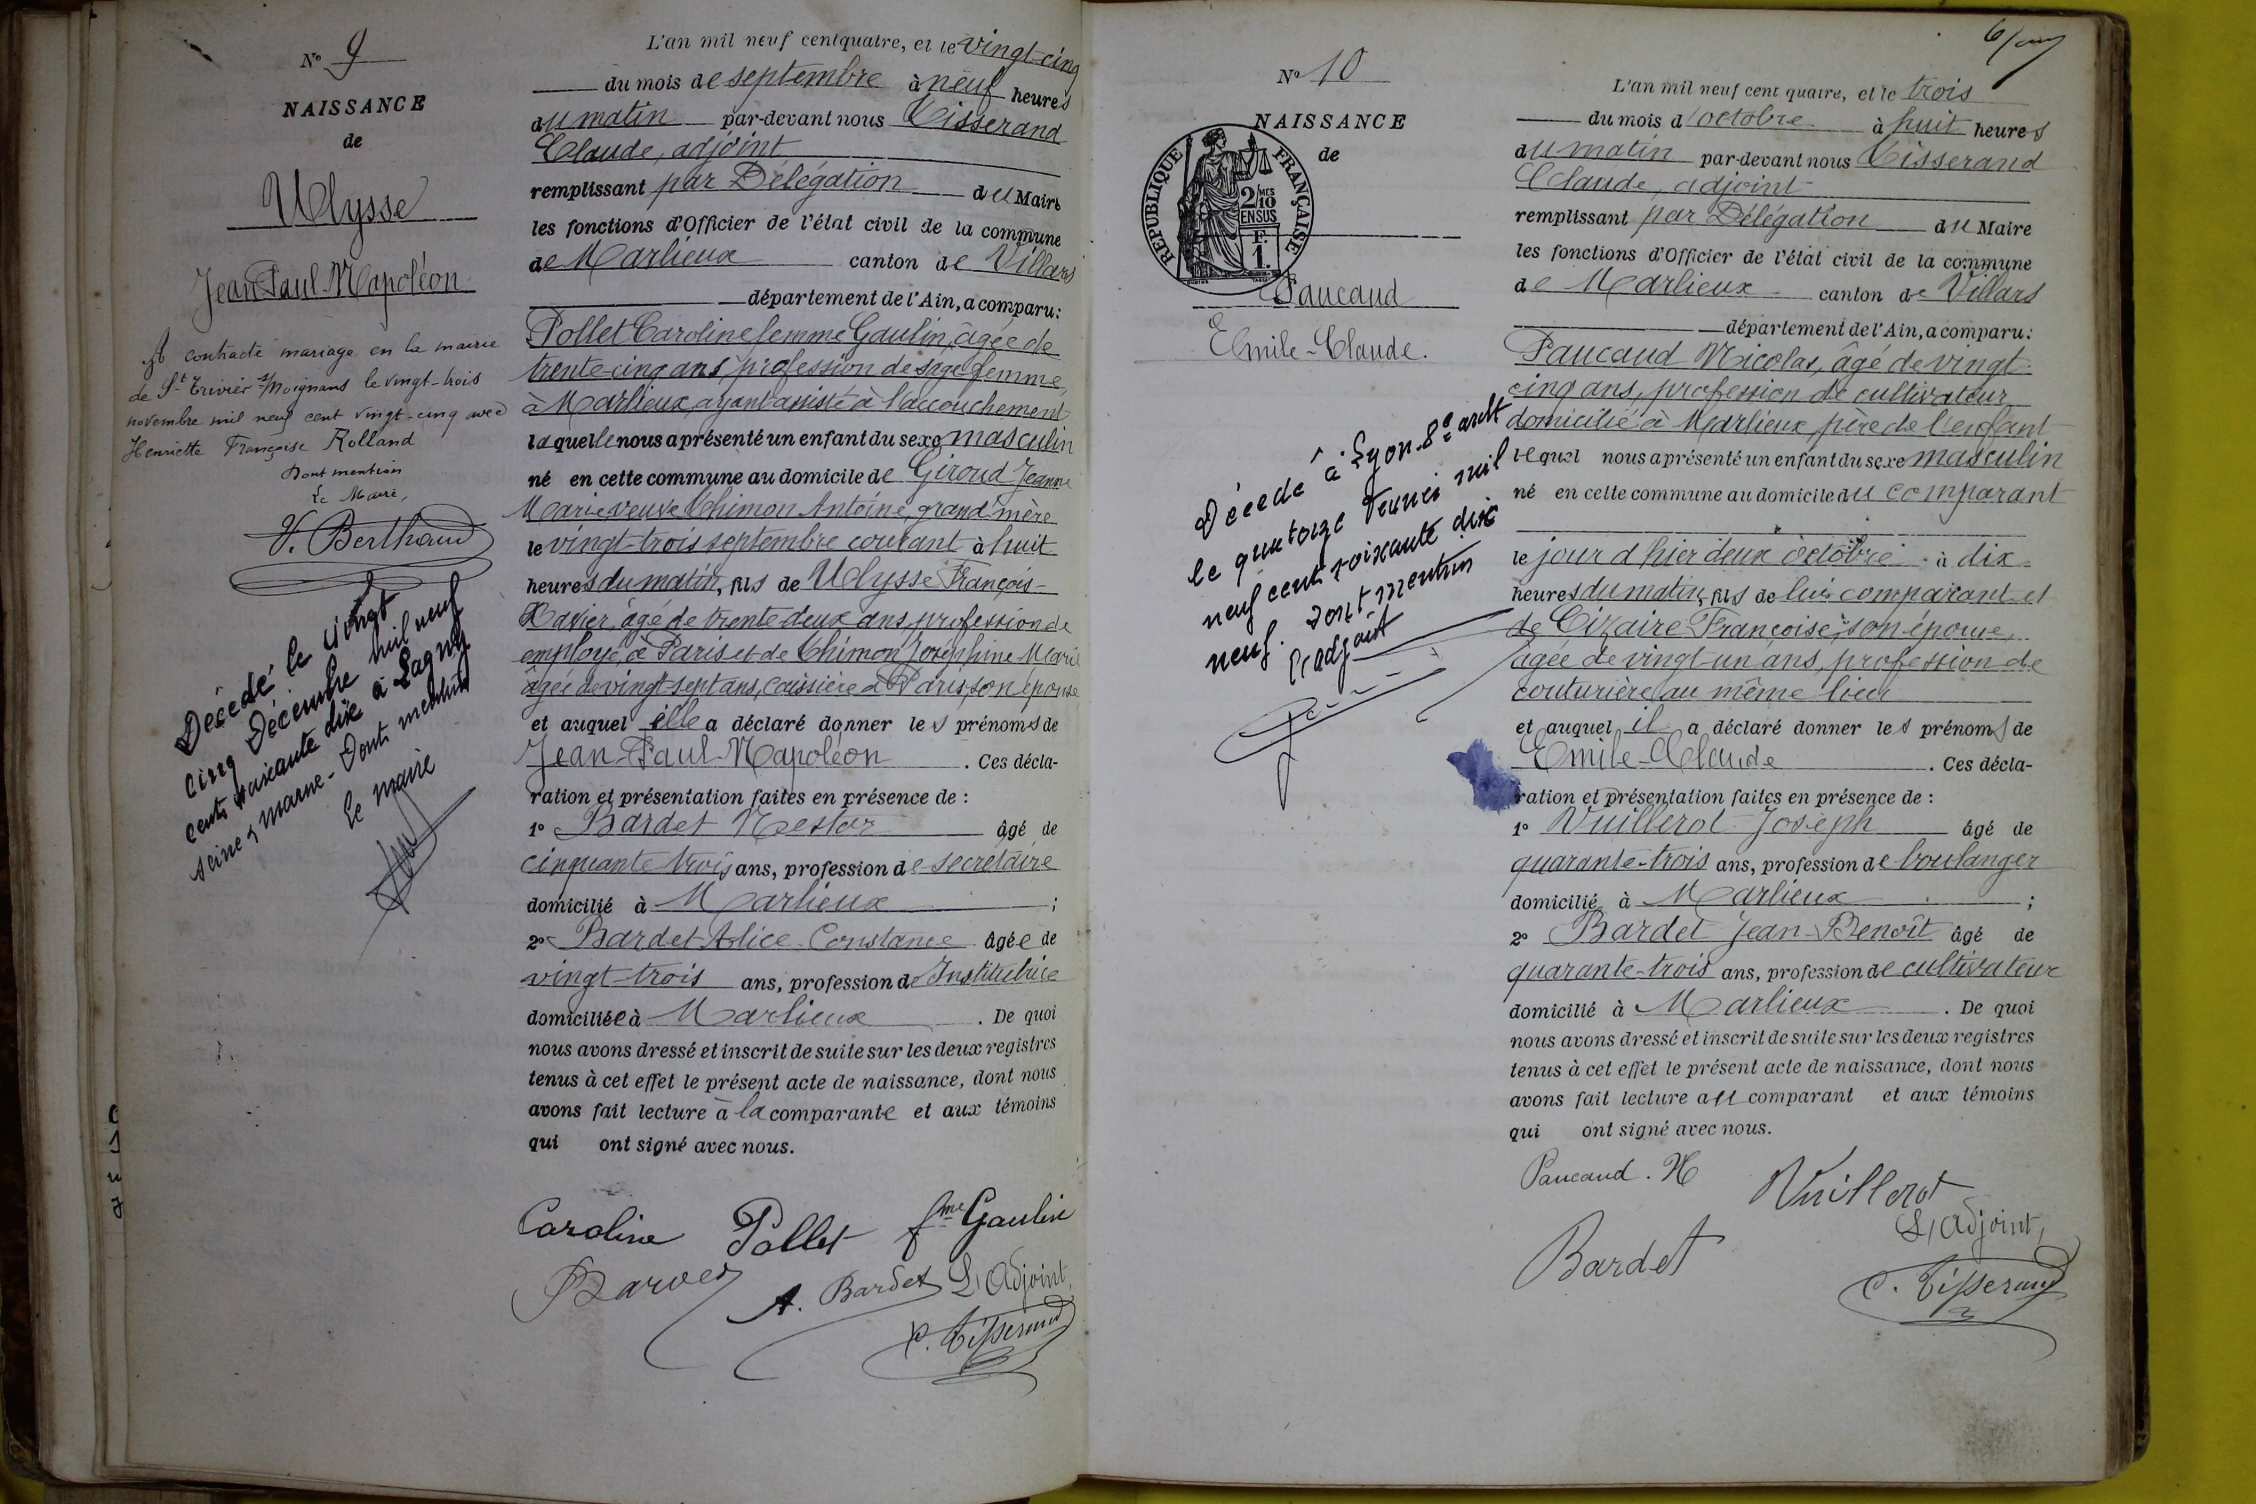 N° 9
NAISSANCE
de
Ulysse
Jean Paul Napoléon
A contracté mariage en la mairie
de St Trivier s/Moignans le vingt-trois
novembre mil neuf cent vingt-cinq avec
Henriette Françoise Rolland
Dont mention
Le Maire,
V. Berthaud
Décédé le vingt
cinq Décembre mil neuf
cent soixante dix à Lagny
seine & marne - Dont mention
Le maire
L'an mil neuf cent quatre, et le vingt-cinq
du mois de septembre à neuf heures
du matin par-devant nous Tisserand
Claude, adjoint
remplissant par Délégation du Maire
les fonctions d'Officier de l'état civil de la commune
de Marlieux canton de Villars
département de l'Ain, a comparu:
Pollet Caroline femme Gaulin, âgée de
trente-cinq ans, profession de sage-femme,
à Marlieux, ayant assisté à l'accouchement
laquelle nous a présenté un enfant du sexe masculin
né en cette commune au domicile de Giroud Jeanne
Marie veuve Thimon Antoine, grand'mère
le vingt-trois septembre courant à huit
heures du matin, fils de Ulysse François-
Xavier âgé de trente-deux ans, profession de
employé, à Paris et de Thimon Joséphine Marie
âgée de vingt-sept ans, caissière à Paris, son épouse
et auquel elle a déclaré donner les prénoms de
Jean-Paul-Napoléon . Ces décla-
ration et présentation faites en présence de :
1° Bardet Nestor âgé de
cinquante trois ans, profession de secrétaire
domicilié à Marlieux ;
2° Bardet Alice Constance âgée de
vingt-trois ans, profession de Institutrice
domiciliée à Marlieux . De quoi
nous avons dressé et inscrit de suite sur les deux registres
tenus à cet effet le présent acte de naissance, dont nous
avons fait lecture à la comparante et aux témoins
qui ont signé avec nous.
Caroline Pollet fme Gaulin
Bardet A. Bardet L'Adjoint,
C. Tisserand
N° 10
NAISSANCE
de
REPUBLIQUE FRANÇAISE
2/10 MES
EN SUS
F.
1.
Paucaud
Emile-Claude.
Décédé à Lyon 8e arrdt
le quatorze février mil
neuf cent soixante dix
neuf. Dont mention
l'adjoint
L'an mil neuf cent quatre, et le trois
du mois d'octobre à huit heures
du matin par-devant nous Tisserand
Claude, adjoint
remplissant par Délégation du Maire
les fonctions d'Officier de l'état civil de la commune
de Marlieux canton de Villars
département de l'Ain, a comparu:
Paucaud Nicolas, âgé de vingt-
cinq ans, profession de cultivateur
domicilié à Marlieux, père de l'enfant
lequel nous a présenté un enfant du sexe masculin
né en cette commune au domicile du comparant
le jour d'hier deux octobre à dix
heures du matin, fils de lui comparant et
de Cizaire Françoise, son épouse,
âgée de vingt-un ans, profession de
couturière au même lieu
et auquel il a déclaré donner les prénoms de
Emile-Claude . Ces décla-
ration et présentation faites en présence de :
1° Vuillerot Joseph âgé de
quarante-trois ans, profession de boulanger
domicilié à Marlieux ;
2° Bardet Jean-Benoît âgé de
quarante-trois ans, profession de cultivateur
domicilié à Marlieux . De quoi
nous avons dressé et inscrit de suite sur les deux registres
tenus à cet effet le présent acte de naissance, dont nous
avons fait lecture au comparant et aux témoins
qui ont signé avec nous.
Paucaud. N Vuillerot
L'adjoint,
Bardet
C. Tisserand